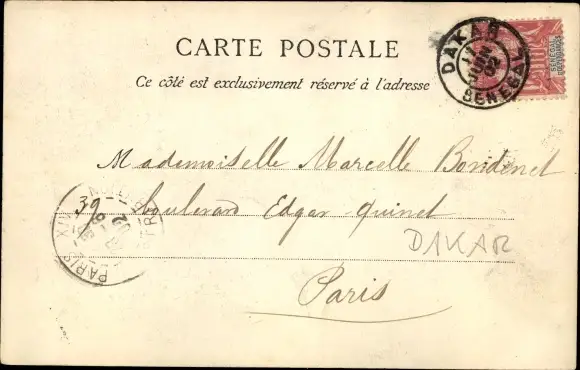 CARTE POSTALE
Ce côté est exclusivement réservé à l'adresse
DAKAR
11
JUIN
02
SENEGAL
Mademoiselle Marcelle Bondenet
39 boulevard Edgar Quinet
DAKAR
Paris
PARIS XIV